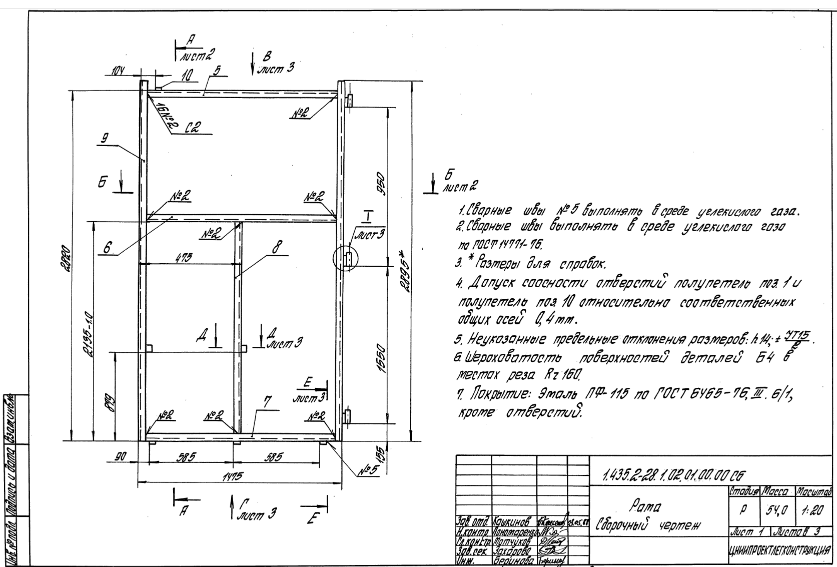 А
лист 2
В
лист 3
104
10
5
16 №2
С2
№2
9
Б
Б
лист 2
950
№2
№2
Т
лист 3
6
№2
8
475
2820
2135-1.0
2895*
Д
Д
лист 3
1550
Е
лист 3
879
№2
№2
7
№2
155
90
585
585
№5
1475
А
Г
лист 3
Е
1. Сварные швы №5 выполнять в среде углекислого газа.
2. Сварные швы выполнять в среде углекислого газа
по ГОСТ 14771-76.
3. * Размеры для справок.
4. Допуск соосности отверстий полупетель поз. 1 и
полупетель поз 10 относительно соответственных
общих осей 0,4 mm.
5. Неуказанные предельные отклонения размеров: h14; ±
6. Шероховатость поверхностей деталей Б4 в
местах реза Rz 160.
7. Покрытие: Эмаль ПФ-115 по ГОСТ 6465-76, III. 6/1,
кроме отверстий.
1.435.2-28.1.02.01.00.00 СБ
Рама
Сборочный чертеж
Стадия Масса Масштаб
Р 54,0 1:20
Лист 1 Листов 3
ЦНИИПРОЕКТЛЕГКОНСТРУКЦИЯ
Зав. отд.
Н.контр.
Гл.констр.
Зав. сек. Захарова
Инж.
Инв. № подл. Подпись и дата Взам.инв.№